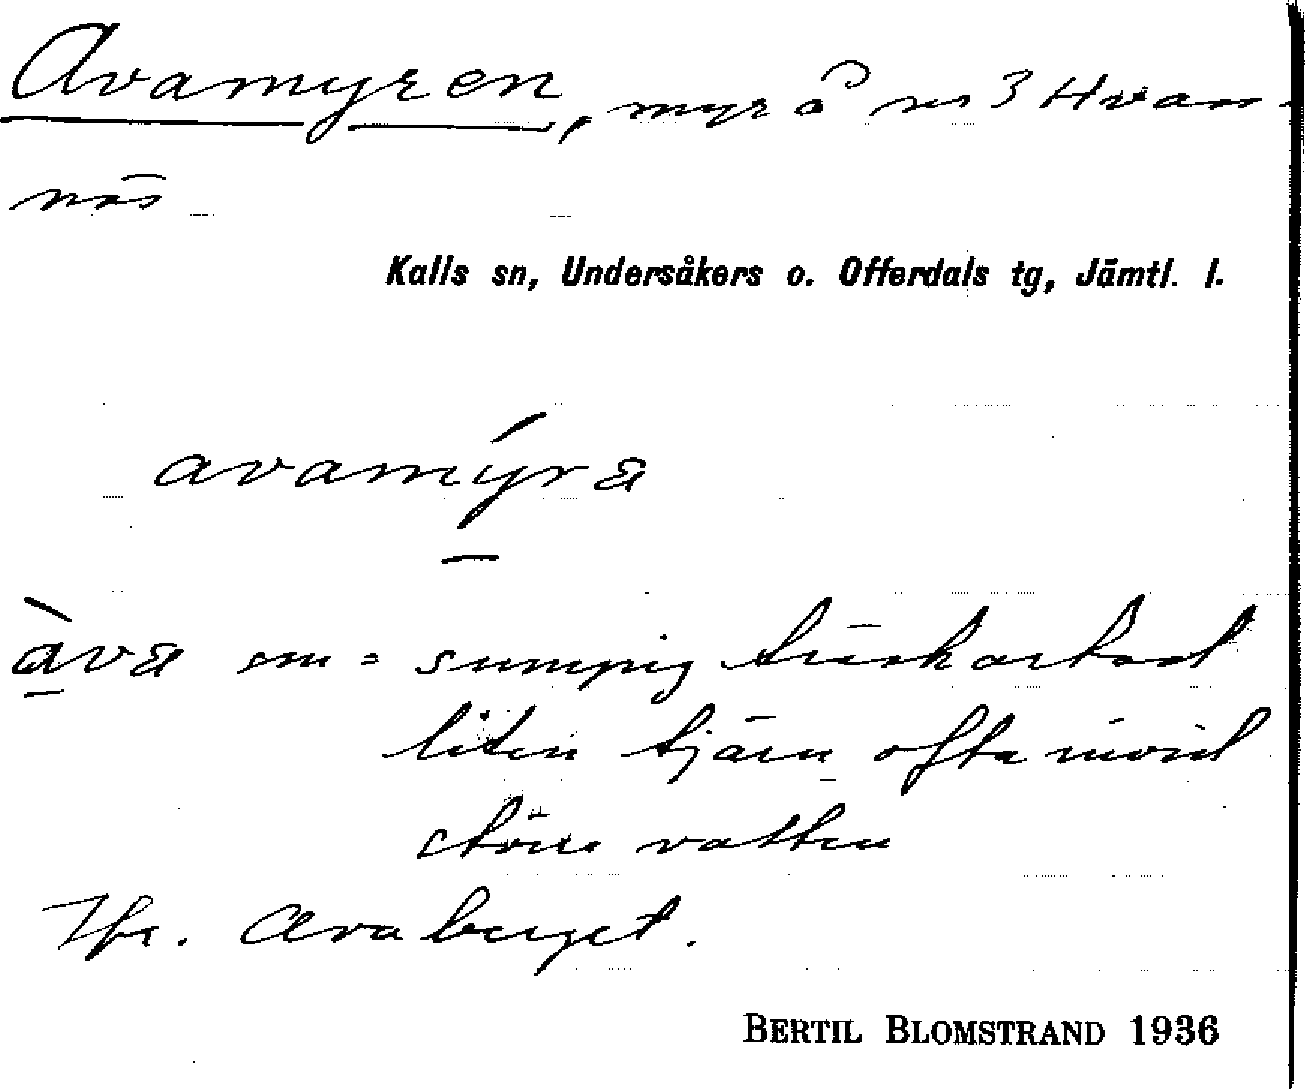 Avamyren, myr å nr 3 Hvan-
näs
Kalls sn, Undersåkers o. Offerdals tg, Jämtl. l.
avamýra
àva sm = sumpig
liten tjärn ofta invid
större vatten
Jfr. Avaberget.
BERTIL BLOMSTRAND 1936